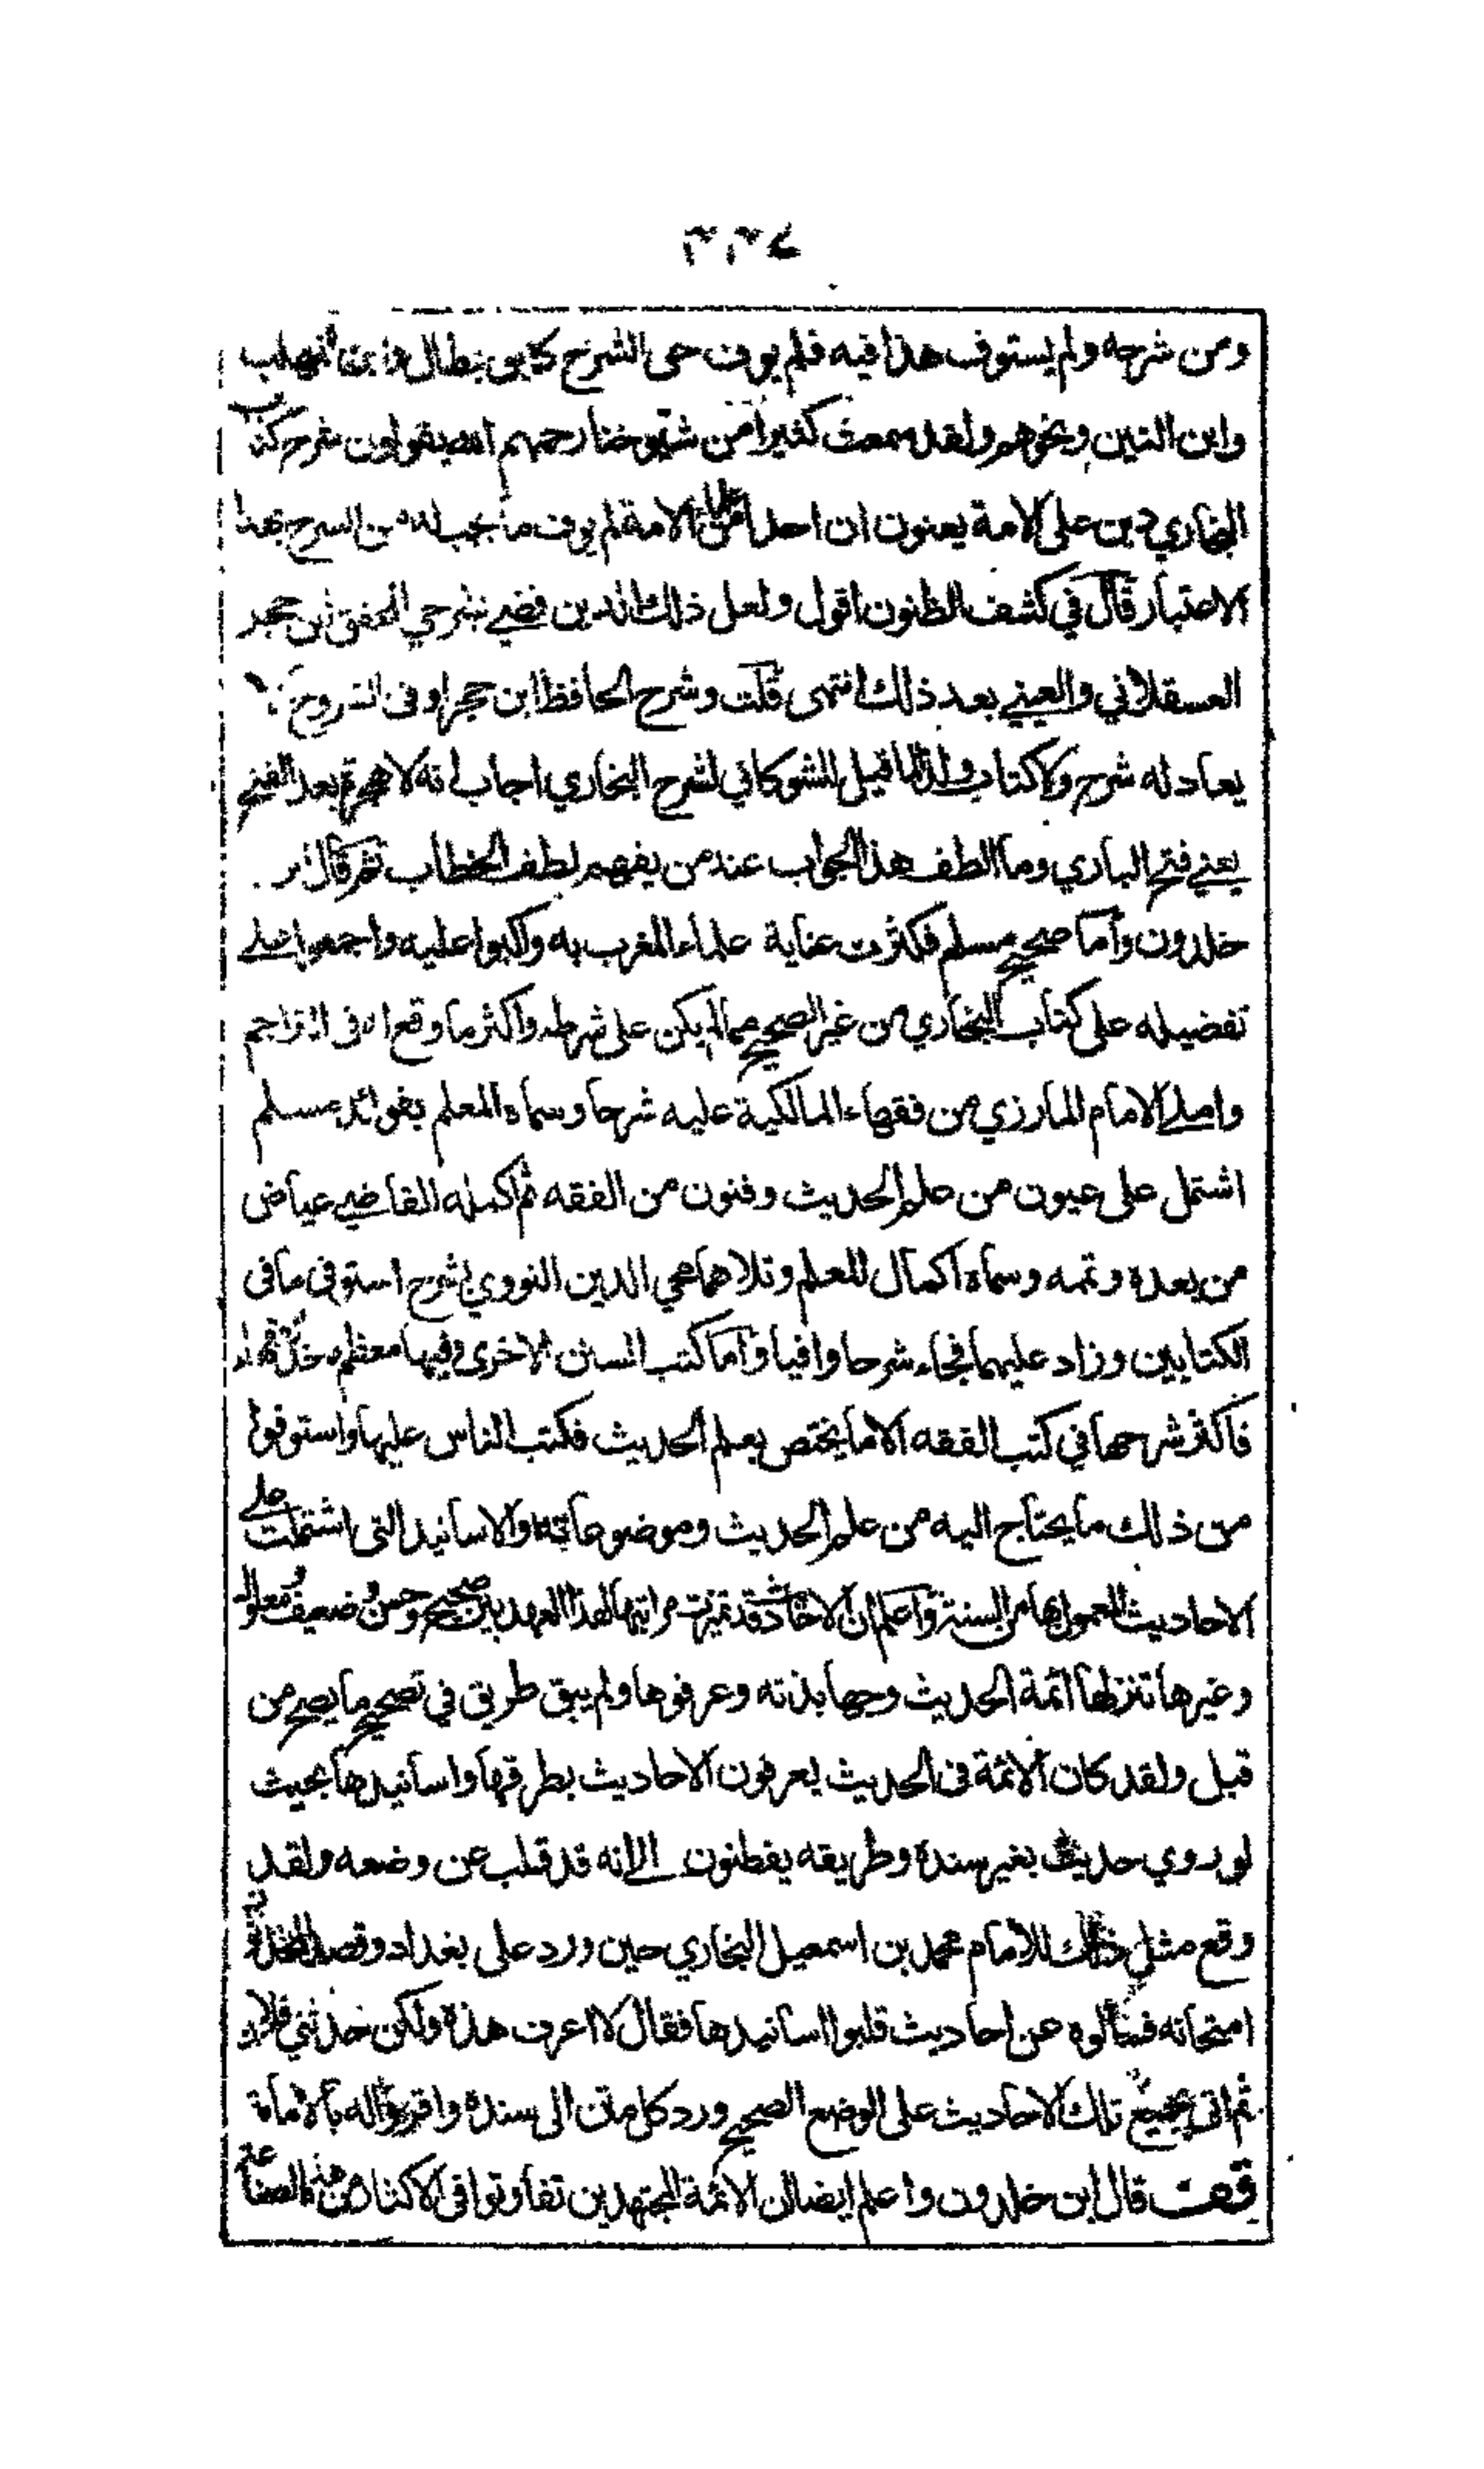 ٣٣٤
ومن شرحه ولم يستوف هذا فيه فلم يوف حق الشرح كابن بطال وابن المهلب
وابن التين ونحوهم ولقد سمعت كثيرا من شيوخنا رحمهم الله يقولون شرح كتاب
البخاري دين على الامة يعنون ان احدا من علماء الامة لم يوف ما يجب له من الشرح بهذا
الاعتبار قال في كشف الظنون اقول ولعل ذلك الدين قضي بشرحي المحقق ابن حجر
العسقلاني والعيني بعد ذلك انتهى قلت وشرح الحافظ ابن حجر اوفى الشروح لا
يعادله شرح ولا كتاب ولذا لما قيل للشوكاني لشرح البخاري اجاب انه لا هجرة بعد الفتح
يعني فتح الباري وما الطف هذا الجواب عند من يفهم لطف الخطاب ثم قال ابن
خلدون واما صحيح مسلم فكثرت عناية علماء المغرب به واكبوا عليه واجمعوا على
تفضيله على كتاب البخاري من غير الصحيح مما لم يكن على شرطه واكثر ما وقع له في التراجم
واملى الامام المارزي من فقهاء المالكية عليه شرحا وسماه المعلم بفوائد مسلم
اشتمل على عيون من علم الحديث وفنون من الفقه ثم اكمله القاضي عياض
من بعده وتمه وسماه اكمال المعلم وتلاهما محي الدين النووي بشرح استوفى ما في
الكتابين وزاد عليهما فجاء شرحا وافيا واما كتب السنن الاخرى وفيها معظم مآخذ الفقهاء
فاكثر شرحها في كتب الفقه الا ما يختص بعلم الحديث فكتب الناس عليها واستوفوا
من ذلك ما يحتاج اليه من علم الحديث وموضوعاته والاسانيد التي اشتملت على
الاحاديث المعمول بها من السنة واعلم ان الاحاديث قد تميزت مراتبها لهذا العهد بين صحيح وحسن وضعيف ومعلول
وغيرها تنزلها ائمة الحديث وجهابذته وعرفوها ولم يبق طريق في تصحيح ما يصح من
قبل ولقد كان الائمة في الحديث يعرفون الاحاديث بطرقها واسانيدها بحيث
لو روي حديث بغير سنده وطريقه يفطنون الى انه قد قلب عن وضعه ولقد
وقع مثل ذلك للامام محمد بن اسمعيل البخاري حين ورد على بغداد وقصد المحدثون
امتحانه فسألوه عن احاديث قلبوا اسانيدها فقال لا اعرف هذه ولكن حدثني فلان
ثم اتى بجميع تلك الاحاديث على الوضع الصحيح ورد كل متن الى سنده واقروا له بالامامة
قف قال ابن خلدون واعلم ايضا ان الائمة المجتهدين تفاوتوا في الاكثار من هذه الصناعة